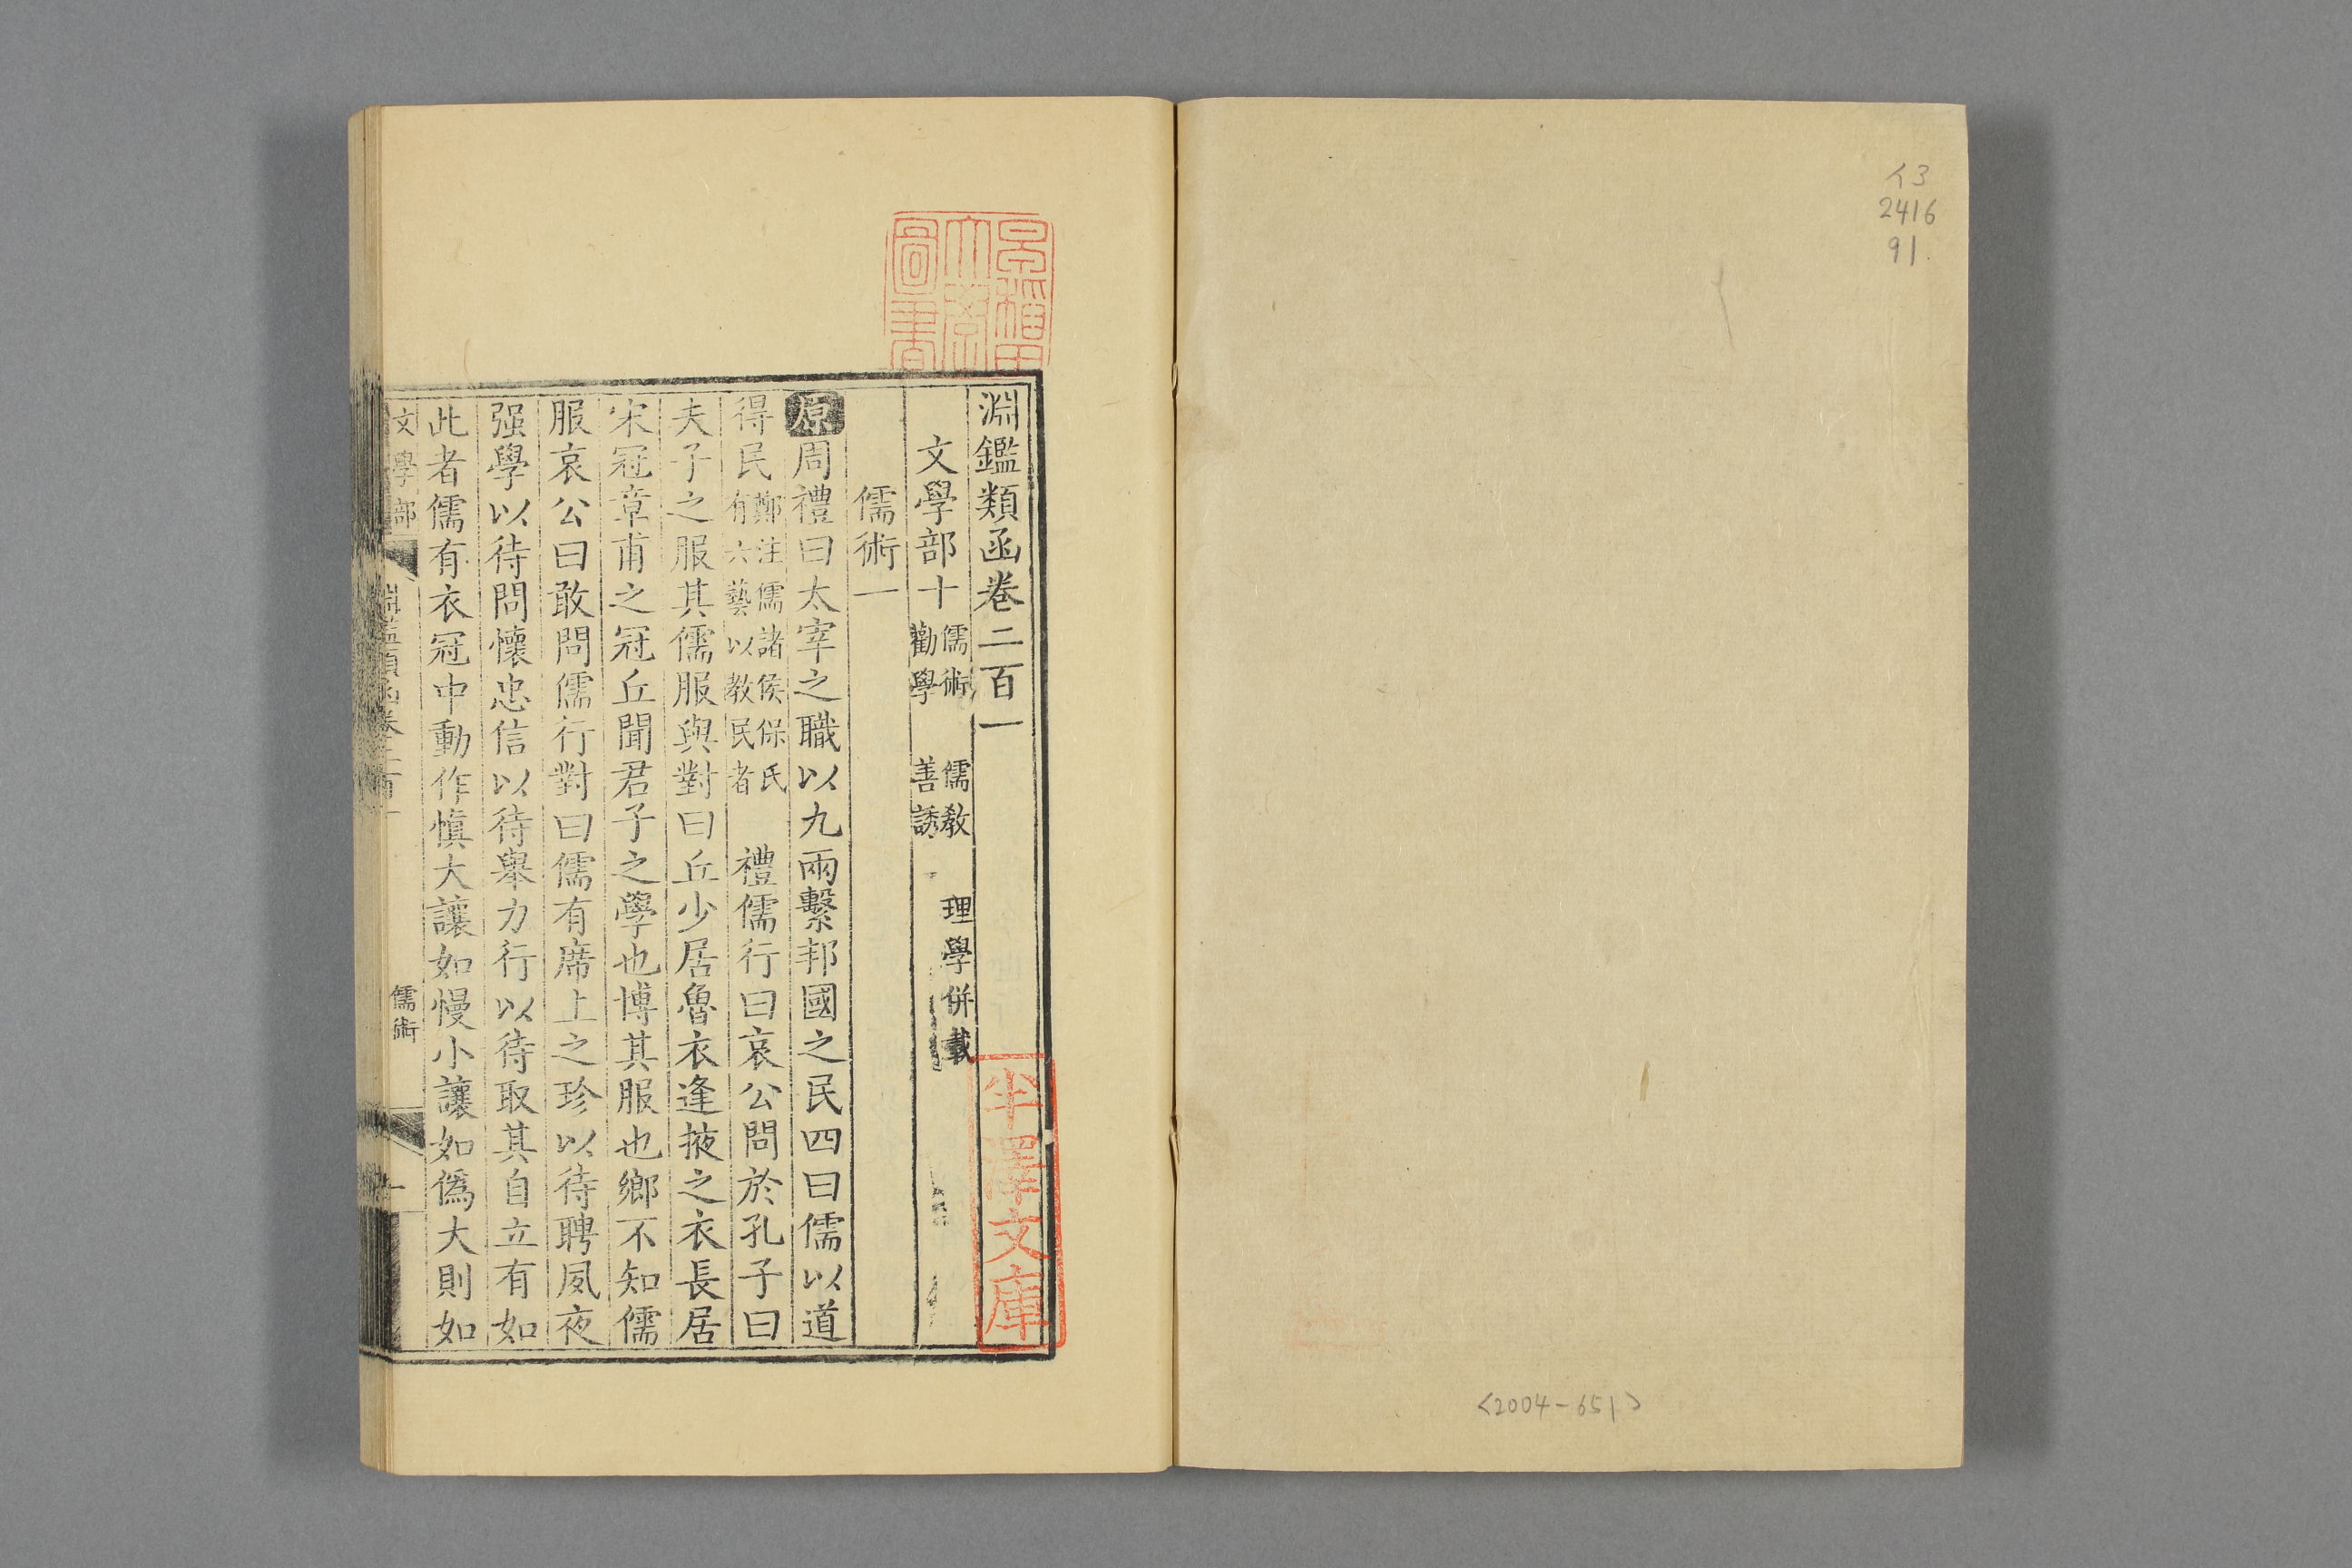 イ3
2416
91
<2004-651>
早稲田
大學
圖書
淵鑑類函卷二百一
文學部十 儒術 儒教 理學併載
勸學 善誘
儒術一
原 周禮曰太宰之職以九兩繫邦國之民四曰儒以道
得民 鄭注儒諸侯保氏
有六藝以教民者
禮儒行曰哀公問於孔子曰
夫子之服其儒服與對曰丘少居魯衣逢掖之衣長居
宋冠章甫之冠丘聞君子之學也博其服也鄉不知儒
服哀公曰敢問儒行對曰儒有席上之珍以待聘夙夜
强學以待問懷忠信以待舉力行以待取其自立有如
此者儒有衣冠中動作慎大讓如慢小讓如偽大則如
文學部 淵鑑類函卷二百一 儒術 一
半澤文庫